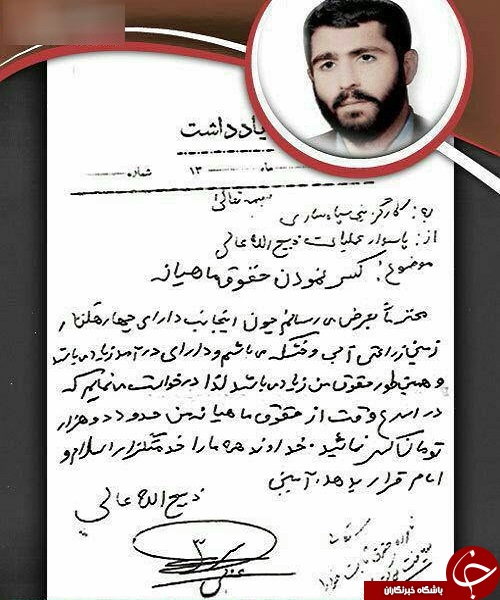 یادداشت
ماه ۱۳ شماره
بسمه تعالی
به: کارگزینی سپاه ساری
از: پاسدار عملیات ذبیح الله عالی
موضوع: کسر نمودن حقوق ماهیانه
محترماً بعرض می رسانم چون اینجانب دارای چهار هکتار
زمین زراعتی آبی و خشکه می باشم و دارای درآمد زیاد می باشد
و همینطور حقوق من زیاد می باشد لذا درخواست می نمایم که
در اسرع وقت از حقوق ماهیانه من حدود دو هزار
تومان کسر نمائید. خداوند همه ما را خدمتگزار اسلام و
امام قرار بدهد. آمین
ذبیح الله عالی
۳
باشگاه خبرنگاران